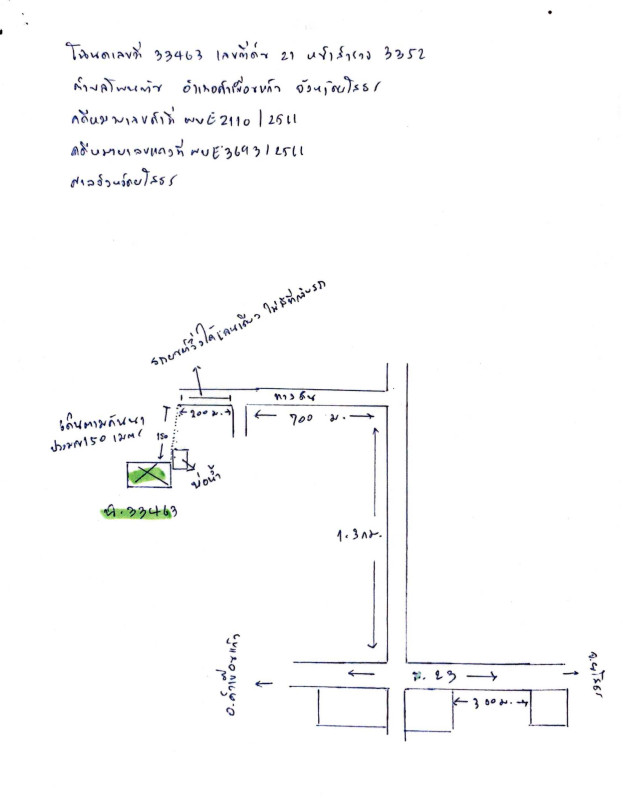 โฉนดเลขที่ 33463 เลขที่ดิน 21 หน้าสำรวจ 3352
ตำบลโพนทัน อำเภอคำเขื่อนแก้ว จังหวัดยโสธร
คดีหมายเลขดำที่ ผบE2110/2561
คดีหมายเลขแดงที่ ผบE3693/2561
ศาลจังหวัดยโสธร
รถยนต์วิ่งได้เลนเดียว ไม่มีที่กลับรถ
ทางดิน
200 ม.
700 ม.
เดินตามคันนา
ประมาณ 150 เมตร
150
บ่อน้ำ
ฉ.33463
1.3 กม.
อ.คำเขื่อนแก้ว
ถ.23
จ.ยโสธร
300 ม.